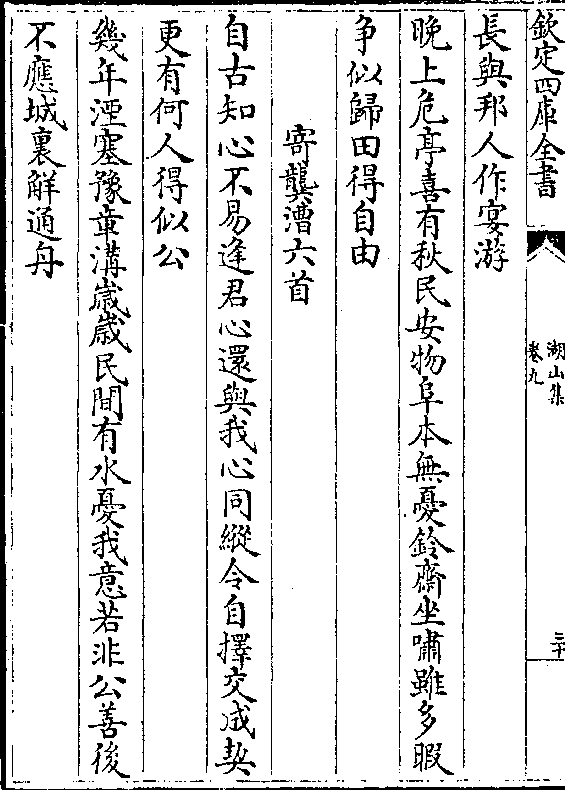 欽定四庫全書
湖山集
卷九
三十
長與邦人作宴游
晚上危亭喜有秋民安物阜本無憂鈴齋坐嘯雖多暇
争似歸田得自由
寄龔漕六首
自古知心不易逢君心還與我心同縱令自擇交成契
更有何人得似公
幾年湮塞豫章溝嵗嵗民間有水憂我意若非公善後
不應城裏解通舟